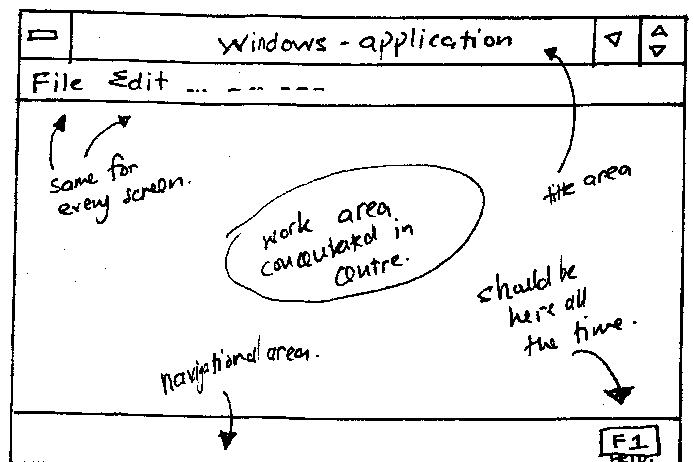 Windows - application
File Edit ... - -- ---
same for
every screen.
title area
work area
concentrated in
centre.
should be
here all
the time.
navigational area.
F1